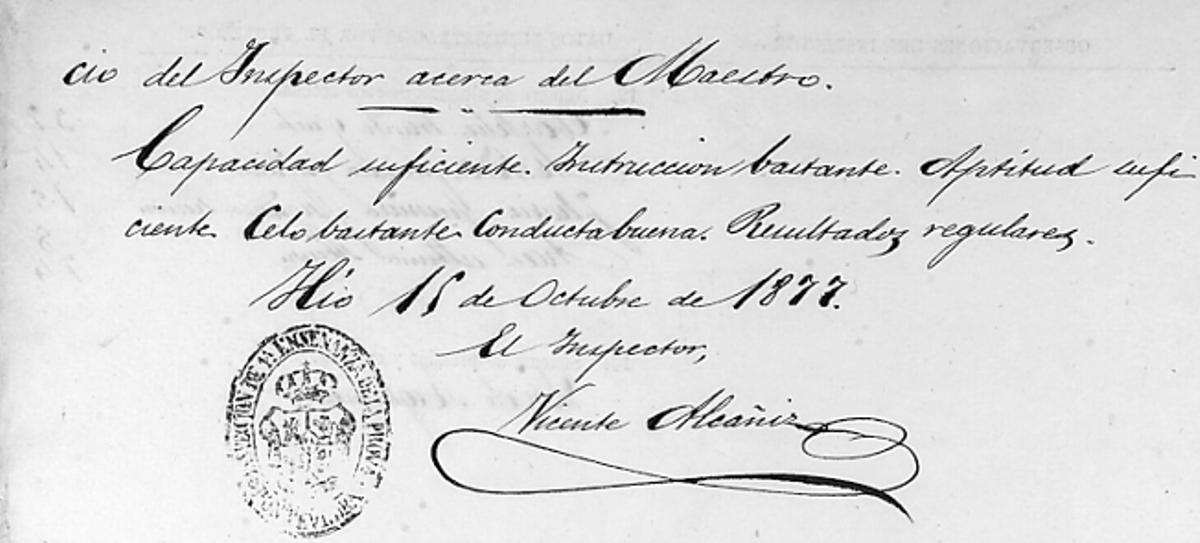 cio del Inspector acerca del Maestro.
Capacidad suficiente. Instruccion bastante. Aptitud sufi
ciente Celo bastante Conducta buena. Resultados regulares.
Hio 15 de Octubre de 1877.
El Inspector,
Vicente Alcañiz
ENSEÑANZA DE LA PROV